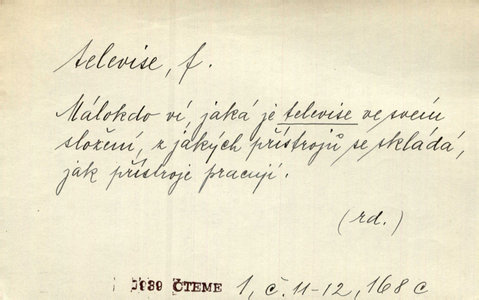 televise, f.
Málokdo ví, jaká je televise ve svém
složení, z jakých přístrojů se skládá,
jak přístroje pracují.
(rd.)
1939 ČTEME 1, č. 11-12, 168 c